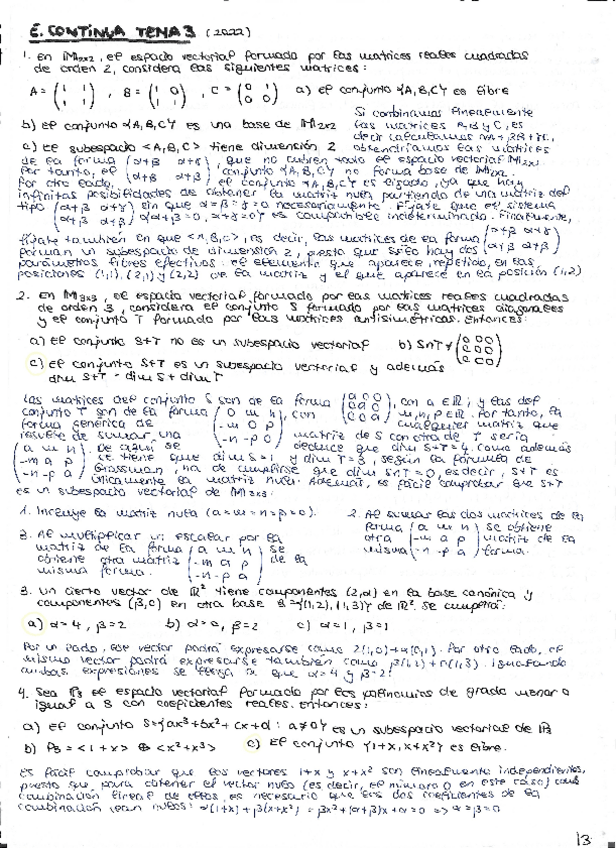 E. CONTINUA TEMA 3 (2022)
1. En M2x2, el espacio vectorial formado por las matrices reales cuadradas
de orden 2, considera las siguientes matrices:
A = (1 1 / 1 1), B = (1 0 / 1 1), C = (0 1 / 0 0) a) el conjunto {A,B,C} es libre
b) el conjunto {A,B,C} es una base de M2x2
Si combinamos linealmente
las matrices A, B y C, es
decir calculamos αA + βB + γC,
c) El subespacio <A,B,C> tiene dimensión 2
obtendríamos las matrices
de la forma (α+β α+γ / α+β α+β), que no cubren todo el espacio vectorial M2x2.
Por tanto, el conjunto {A,B,C} no forma base de M2x2.
Por otro lado, el conjunto {A,B,C} es ligado, ya que hay
infinitas posibilidades de obtener la matriz nula partiendo de una matriz del
tipo (α+β α+γ / α+β α+β) sin que α=β=γ=0 necesariamente. Fíjate que el sistema
{α+β=0, α+γ=0} es compatible indeterminado. Finalmente,
fíjate también en que <A,B,C>, es decir, las matrices de la forma (α+β α+γ / α+β α+β)
forman un subespacio de dimensión 2, puesto que sólo hay dos
parámetros libres efectivos: el elemento que aparece repetido, en las
posiciones (1,1), (2,1) y (2,2) de la matriz y el que aparece en la posición (1,2)
2. En M3x3, el espacio vectorial formado por las matrices reales cuadradas
de orden 3, considera el conjunto S formado por las matrices diagonales
y el conjunto T formado por las matrices antisimétricas. Entonces:
a) el conjunto S+T no es un subespacio vectorial b) S∩T ≠ (0 0 0 / 0 0 0 / 0 0 0)
c) El conjunto S+T es un subespacio vectorial y además
dim S+T = dim S + dim T
Las matrices del conjunto S son de la forma (a 0 0 / 0 a 0 / 0 0 a), con a ∈ R; y las del
conjunto T son de la forma (0 m n / -m 0 p / -n -p 0), con m,n,p ∈ R. Por tanto, la
forma genérica de cualquier matriz que
resulte de sumar una matriz de S con otra de T sería
(a m n / -m a p / -n -p a). De aquí se deduce que dim S+T=4. Como además
se tiene que dim S=1 y dim T=3, según la fórmula de
Grassman, ha de cumplirse que dim S∩T=0, es decir, S∩T es
únicamente la matriz nula. Además, es fácil comprobar que S+T
es un subespacio vectorial de M3x3:
1. Incluye la matriz nula (a=m=n=p=0).
2. Al sumar las dos matrices de la
forma (a m n / -m a p / -n -p a) se obtiene
otra matriz de la
misma forma.
3. Al multiplicar un escalar por la
matriz de la forma (a m n / -m a p / -n -p a) se
obtiene otra matriz de la
misma forma.
3. Un cierto vector de R² tiene componentes (2,α) en la base canónica y
componentes (β,0) en otra base B={(1,2), (1,3)} de R². Se cumplirá:
a) α=4, β=2 b) α=0, β=2 c) α=1, β=1
Por un lado, ese vector podrá expresarse como 2(1,0)+α(0,1). Por otro lado, el
mismo vector podrá expresarse también como β(1,2)+0(1,3). Igualando
ambas expresiones se llega a que α=4 y β=2.
4. Sea P3 el espacio vectorial formado por los polinomios de grado menor o
igual a 3 con coeficientes reales. Entonces:
a) El conjunto S={ax³+bx²+cx+d : a≠0} es un subespacio vectorial de P3
b) P3 = <1+x> ⊕ <x²+x³> c) El conjunto {1+x, x+x²} es libre.
Es fácil comprobar que los vectores 1+x y x+x² son linealmente independientes,
puesto que para obtener el vector nulo (es decir, el número 0 en este caso) como
combinación lineal de ellos, es necesario que los dos coeficientes de la
combinación sean nulos: α(1+x)+β(x+x²) = βx²+(α+β)x+α=0 => α=β=0
13